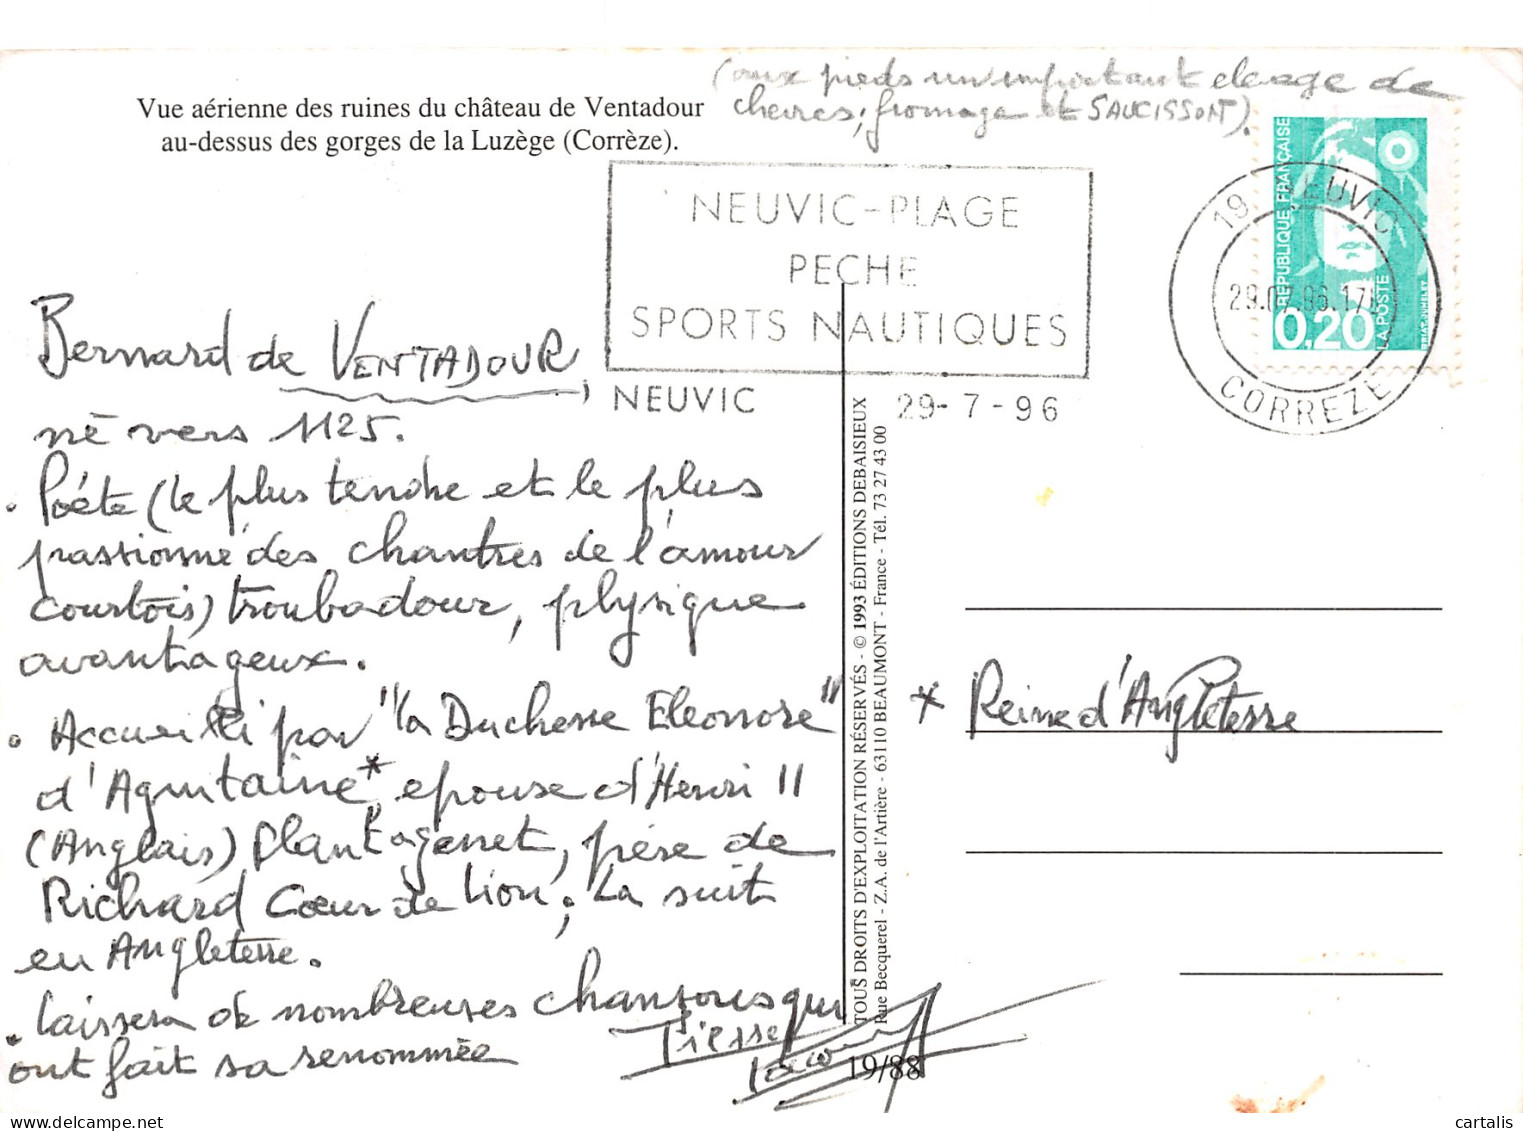 (aux pieds un important elevage de
chevres; fromage et SAUCISSON).
Vue aérienne des ruines du château de Ventadour
au-dessus des gorges de la Luzège (Corrèze).
NEUVIC-PLAGE
PECHE
SPORTS NAUTIQUES
NEUVIC
29-7-96
19 NEUVIC
29.07.96.17H
CORREZE
REPUBLIQUE FRANÇAISE
0,20
LA POSTE
Bernard de VENTADOUR,
né vers 1125.
• Poéte (le plus tendre et le plus
passionné des chantres de l'amour
courtois) troubadour, physique
avantageux.
• Accueilli par "la Duchesse Eleonore"
d'Aquitaine*, epouse d'Henri II
(Anglais) Plantagenet, père de
Richard Cœur de Lion; la suit
en Angleterre.
• laissera de nombreuses chansons qui
ont fait sa renommée
Pierre
* Reine d'Angleterre
TOUS DROITS D'EXPLOITATION RÉSERVÉS - © 1993 ÉDITIONS DEBAISIEUX
Rue Becquerel - Z.A. de l'Artière - 63110 BEAUMONT - France - Tél. 73 27 43 00
19/88
cartalis